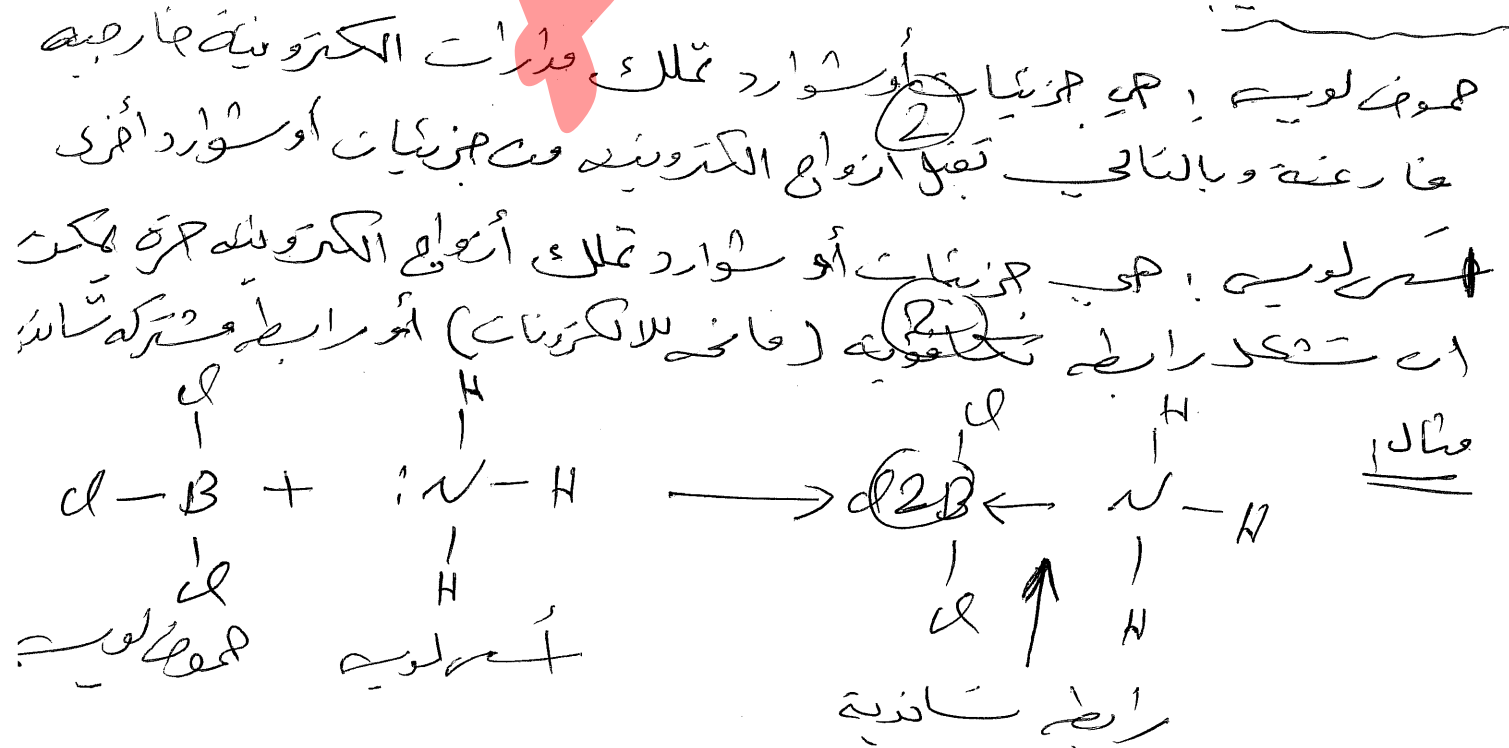 حموض لويس : هي جزيئات أو شوارد تملك مدارات الكترونية خارجية
2
فارغة وبالتالي تقبل أزواج الكترونية من جزيئات أو شوارد أخرى
أسس لويس : هي جزيئات أو شوارد تملك أزواج الكترونية حرة يمكن
2
ان تشكل رابطة (مانحة للالكترونات) أو رابطة مشتركة تساندية
مثال :
Cl H Cl H
Cl — B + : N — H → Cl 2 B ← N — H
Cl H Cl H
حموض لويس أسس لويس
رابطة تساندية